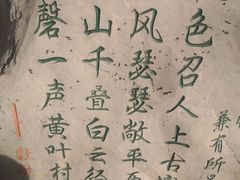 色召人上古
风瑟瑟敞平
山千叠白云径
磬一声黄叶村
兼有所